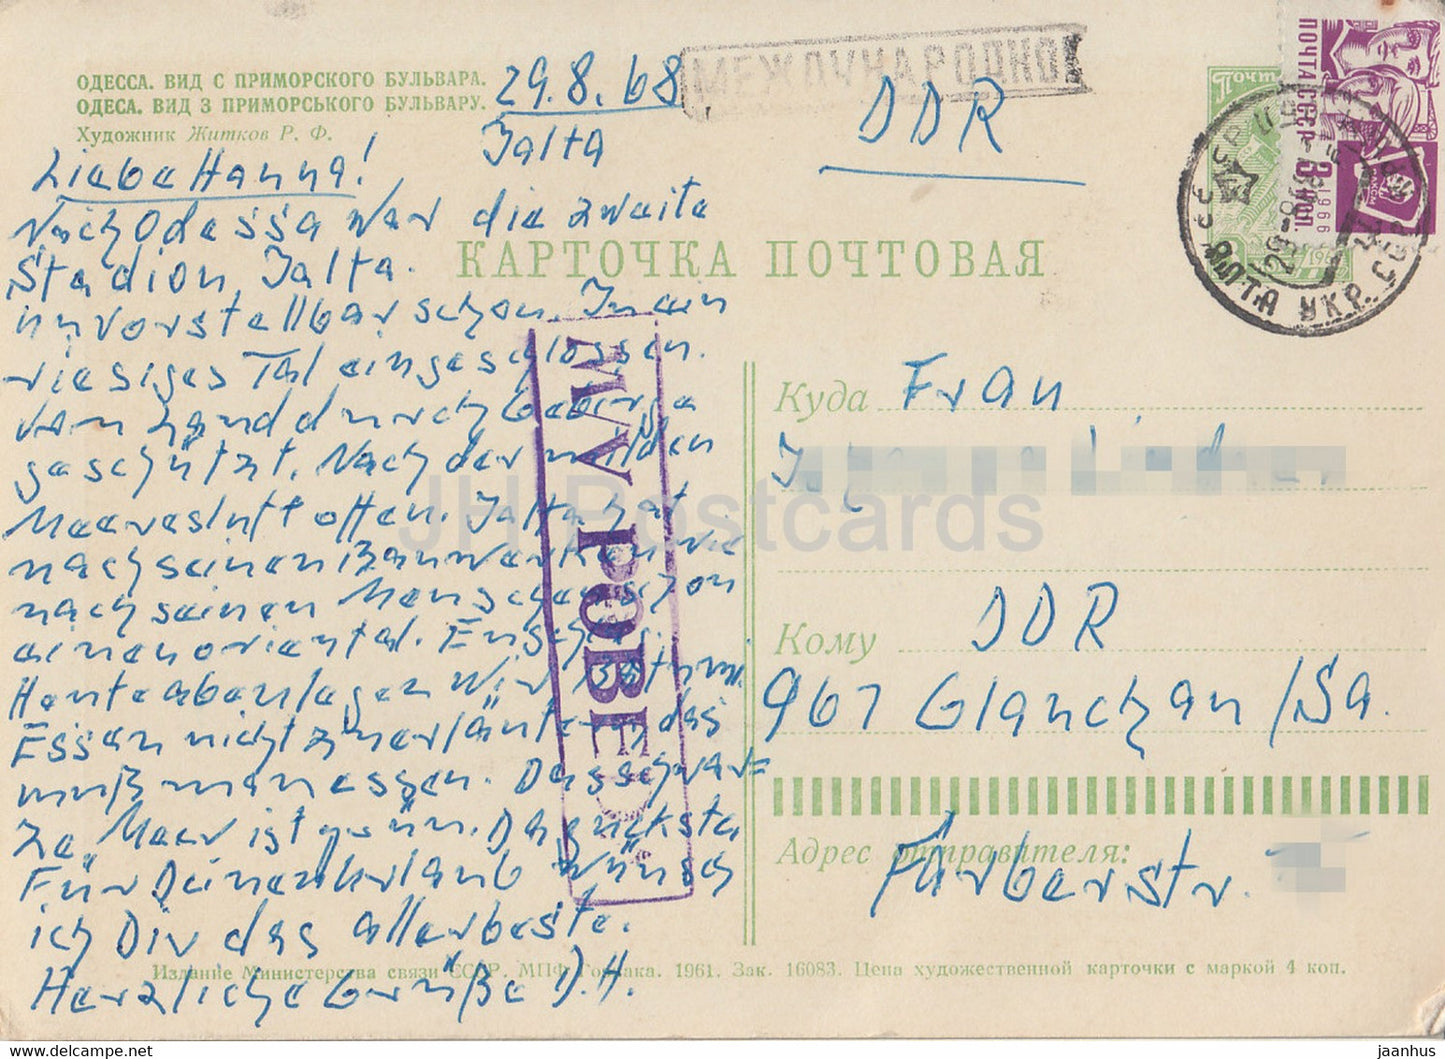 ОДЕССА. ВИД С ПРИМОРСКОГО БУЛЬВАРА.
ОДЕСА. ВИД З ПРИМОРСЬКОГО БУЛЬВАРУ.
Художник Житков Р. Ф.
29.8.68
Jalta
Liebe Hanna!
Nach Odessa war die zweite
Stadion, Jalta.
unvorstellbar schon. In ein
riesiges Tal eingeschlossen.
Vom Land durch Gebirge
geschützt. Nach der milden
Meeresluft offen. Jalta hat
nach seinen Bauwerken wie
nach seinen Menschen schon
einen oriental.
Hautabenlagen wir
Essen nicht zu erläutern, das
muß man essen. Das schwar=
ze Meer ist grün. Das nächste
Für Deinen Urlaub wünsch
ich Dir das allerbeste.
Herzliche Grüße D.H.
МЕЖДУНАРОДНОЕ
DDR
КАРТОЧКА ПОЧТОВАЯ
ПОЧТА СССР 1966
3 КОП.
ЯЛТА УКР. ССР
MVV POBED
Куда Frau
Кому DDR
961 Glauchau/Sa.
Адрес отправителя:
Färberstr.
Издание Министерства связи СССР. МПФ Гознака. 1961. Зак. 16083. Цена художественной карточки с маркой 4 коп.
JH Postcards
www.delcampe.net
jaanhus